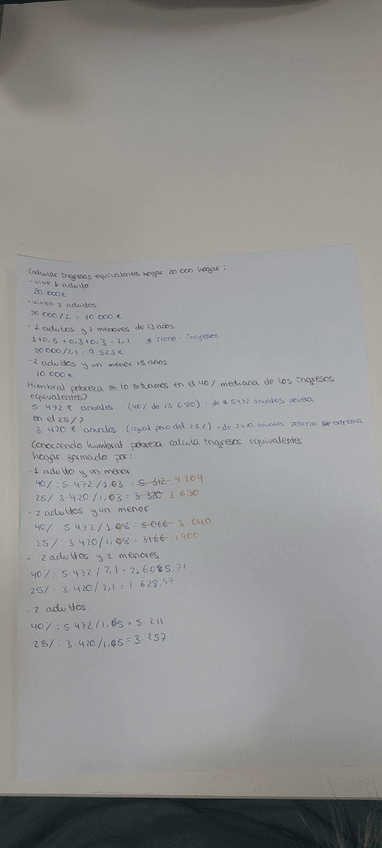 Calcular ingresos equivalentes hogar 20 000 hogar:
- vive 1 adulto
20.000€
- viven 3 adultos
20 000/2 = 10 000 €
- 2 adultos y 2 menores de 13 años
1+0,5 +0,3+0,3 = 2,1 * Tiene - ingresos
20000/2,1 = 9.523€
- 2 adultos y un menor 15 años
10 000€
Humbral pobreza si lo situamos en el 40% mediana de los ingresos
equivalentes?
5 472 € anuales (40% de 13.680) - de 5472 anuales
en el 25%?
3 420 € anuales (igual pero del 25%) - de 3420 anuales pobreza extrema
Conociendo humbral pobreza calcula ingresos equivalentes
hogar formado por:
- 1 adulto y un menor
40% : 5.472/1.03 = 5.312 4.209
25% 3.420/1,03 = 3.320 2.630
- 2 adultos y un menor
40% 5 472/1,08 = 5.066 3.040
25% : 3 420/1,08 = 3166 1.900
- 2 adultos y 2 menores
40% : 5.472/2,1 = 2.6085,71
25% : 3 420/2,1 = 1 628,57
- 2 adultos
40% : 5.472/1,05 = 5.211
25% : 3.420/1,05 = 3.257